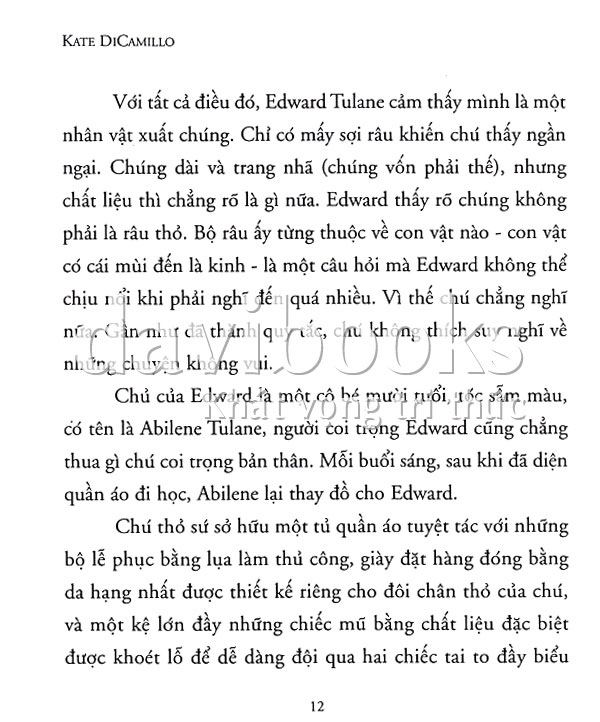 KATE DICAMILLO
Với tất cả điều đó, Edward Tulane cảm thấy mình là một
nhân vật xuất chúng. Chỉ có mấy sợi râu khiến chú thấy ngần
ngại. Chúng dài và trang nhã (chúng vốn phải thế), nhưng
chất liệu thì chẳng rõ là gì nữa. Edward thấy rõ chúng không
phải là râu thỏ. Bộ râu ấy từng thuộc về con vật nào - con vật
có cái mùi đến là kinh - là một câu hỏi mà Edward không thể
chịu nổi khi phải nghĩ đến quá nhiều. Vì thế chú chẳng nghĩ
nữa. Gần như đã thành quy tắc, chú không thích suy nghĩ về
những chuyện không vui.
davibooks
Khát vọng tri thức
Chủ của Edward là một cô bé mười tuổi, tóc sẫm màu,
có tên là Abilene Tulane, người coi trọng Edward cũng chẳng
thua gì chú coi trọng bản thân. Mỗi buổi sáng, sau khi đã diện
quần áo đi học, Abilene lại thay đồ cho Edward.
Chú thỏ sứ sở hữu một tủ quần áo tuyệt tác với những
bộ lễ phục bằng lụa làm thủ công, giày đặt hàng đóng bằng
da hạng nhất được thiết kế riêng cho đôi chân thỏ của chú,
và một kệ lớn đầy những chiếc mũ bằng chất liệu đặc biệt
được khoét lỗ để dễ dàng đội qua hai chiếc tai to đầy biểu
12